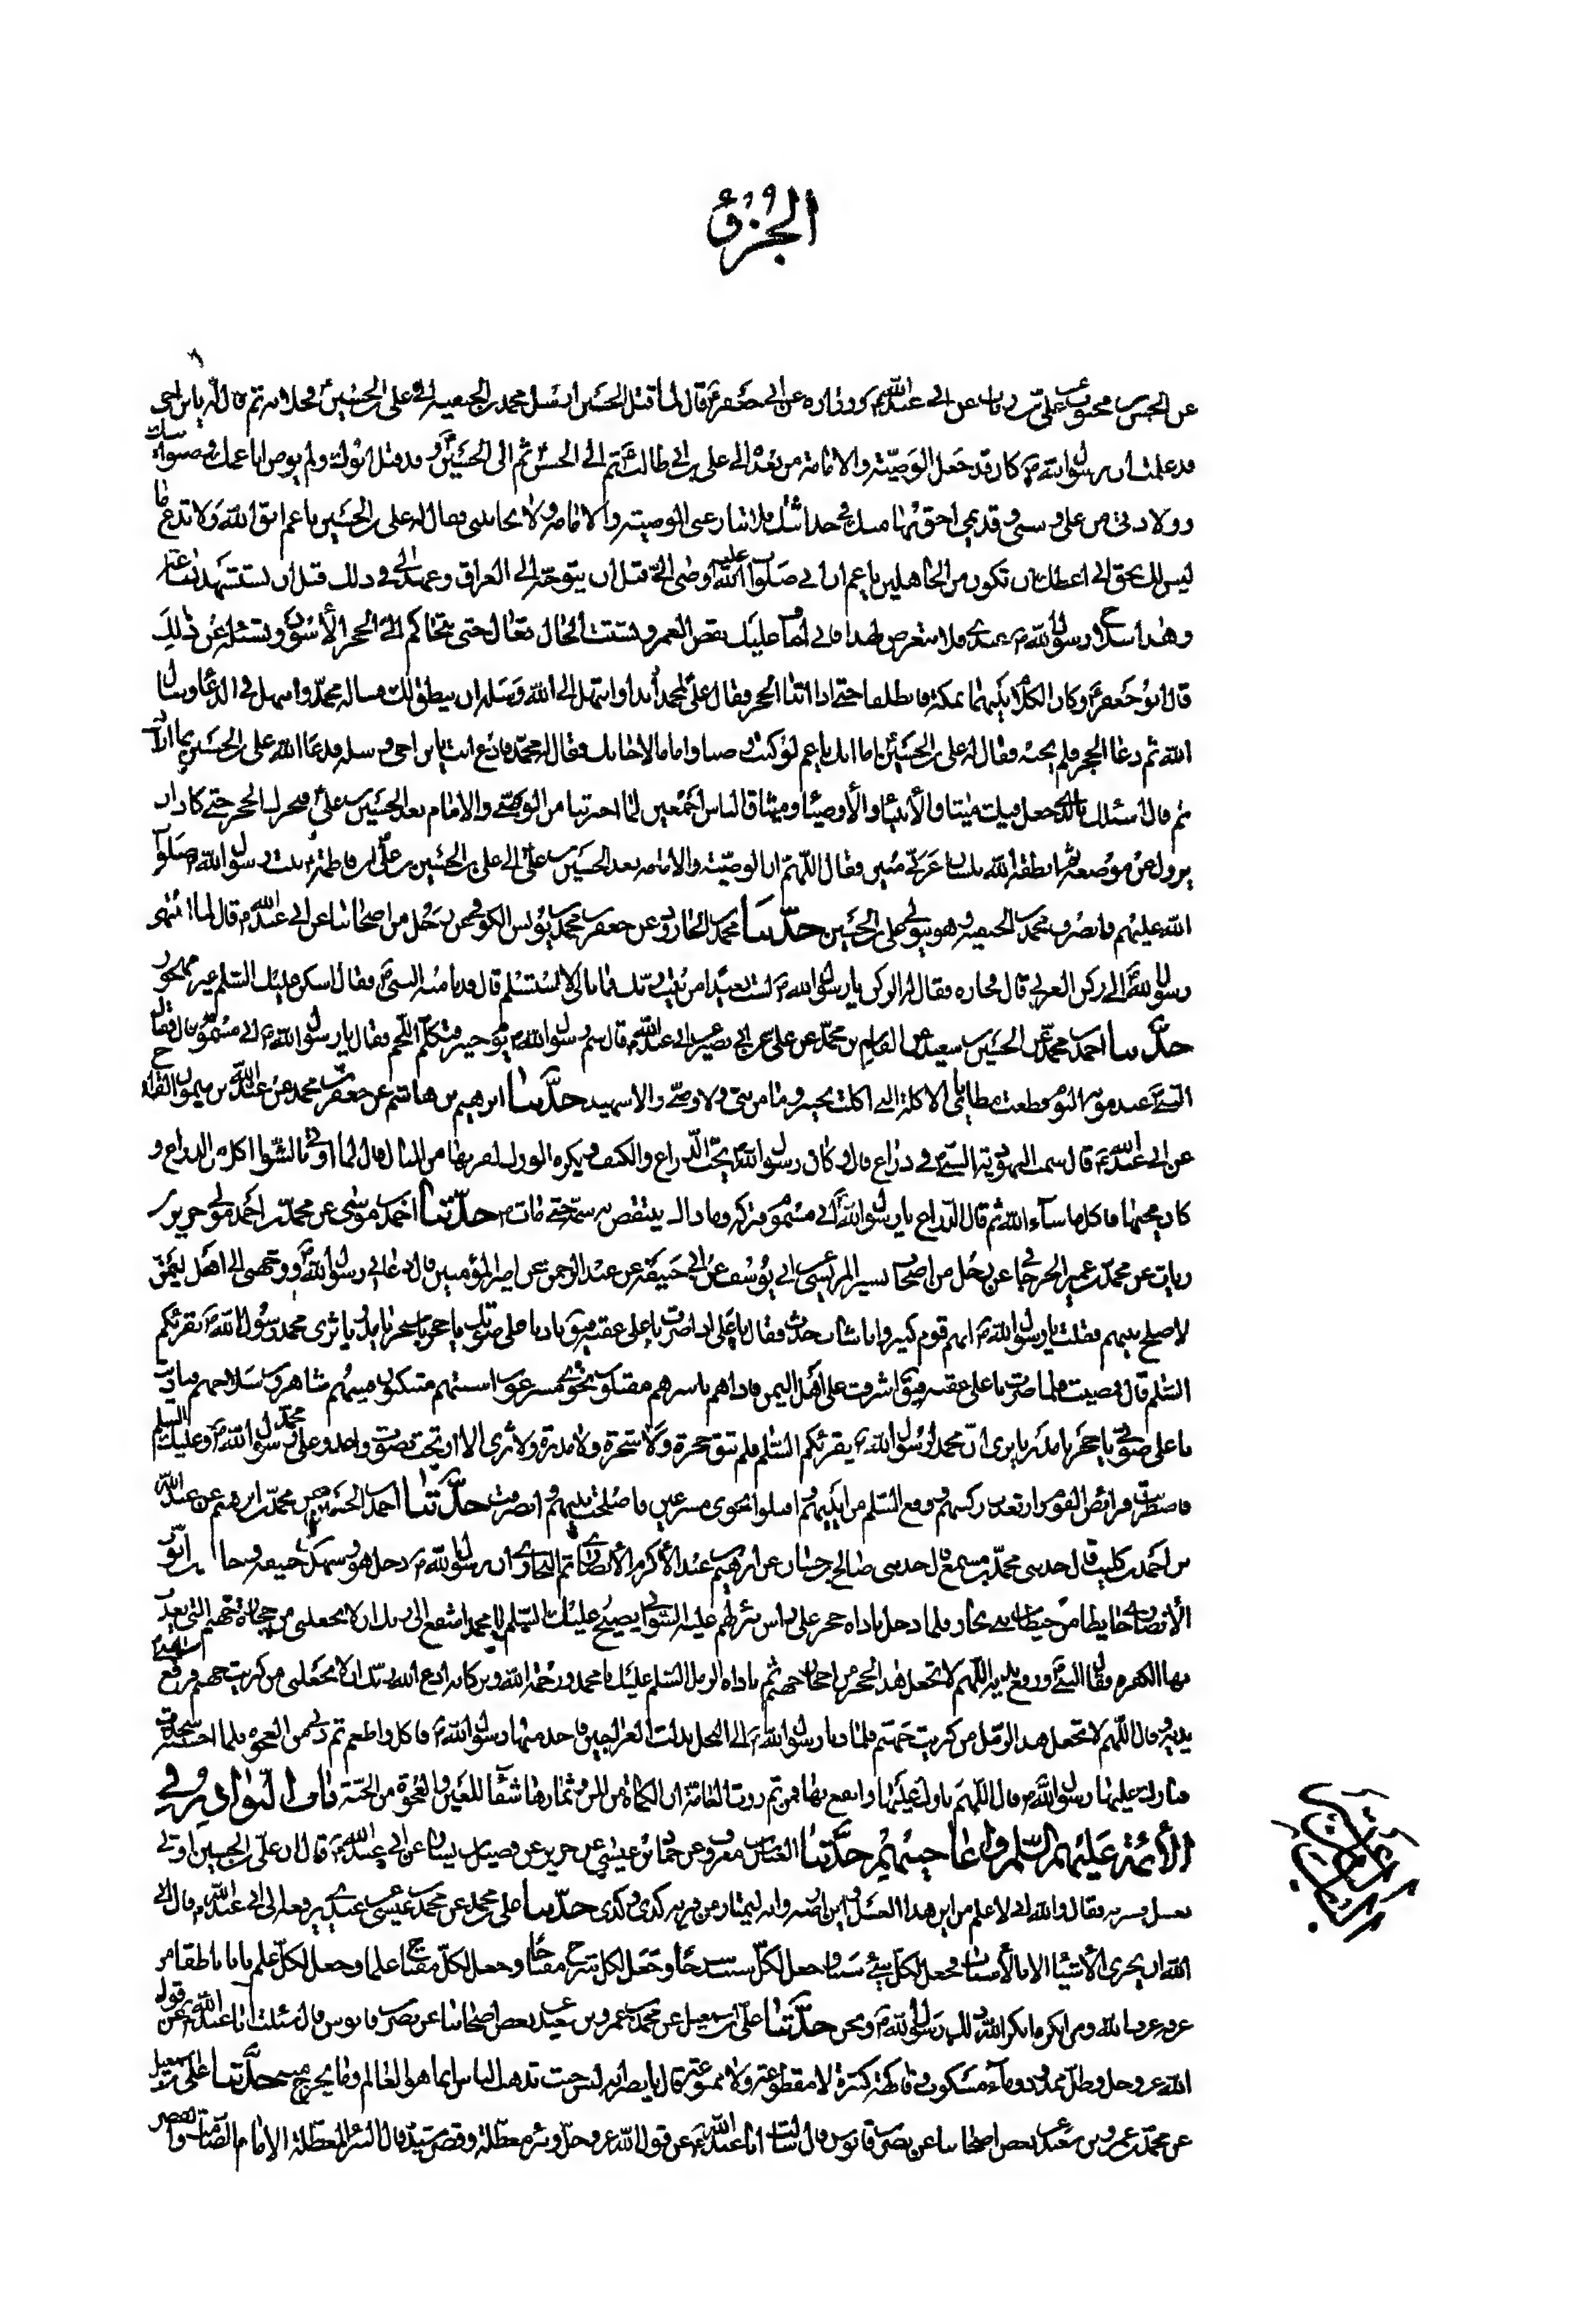 الجزؤ
عن الحسن بن محبوب عن علي بن رئاب عن ابي عبد الله ع وزراره عن ابي جعفر ع قال لما قتل الحسين ارسل محمد بن الحنفيه الى علي بن الحسين ع فخلا به ثم قال له يا بن اخي
قد علمت ان رسول الله ص كان قد جعل الوصية والامامة من بعده الى علي بن ابي طالب ثم الى الحسن ثم الى الحسين وقد قتل ابوك ولم يوص انا عمك وصنو ابيك
وولادتي من علي في سني وقدمي احق بها منك في حداثتك فلا تنازعني الوصية والامامة ولا تجانبني فقال له علي بن الحسين يا عم اتق الله ولا تدع ما
ليس لك بحق اني اعظك ان تكون من الجاهلين يا عم ان ابي صلوات الله عليه اوصى الي قبل ان يتوجه الى العراق وعهد الي في ذلك قبل ان يستشهد بساعة
وهذا سلاح رسول الله ص عندي فلا تتعرض لهذا فاني اخاف عليك نقص العمر وتشتت الحال تعال حتى نتحاكم الى الحجر الأسود ونسئله عن ذلك
قال ابو جعفر ع وكان الكلام بينهما بمكة فانطلقا حتى اذا اتيا الحجر فقال علي لمحمد ابدا وابتهل الى الله وسله ان ينطق لك فسأله محمد وابتهل في الدعا وسال
الله ثم دعا الحجر فلم يجبه فقال له علي بن الحسين ع اما انك يا عم لو كنت وصيا واماما لاجابك فقال له محمد فادع انت يا بن اخي وسله فدعا الله علي بن الحسين بما اراد
ثم قال اسئلك بالذي جعل فيك ميثاق الأنبيا والأوصيا وميثاق الناس اجمعين لما اخبرتنا من الوصي والامام بعد الحسين بن علي ع فتحرك الحجر حتى كاد ان
يزول عن موضعه ثم انطقه الله بلسان عربي مبين فقال اللهم ان الوصية والامامه بعد الحسين بن علي الى علي بن الحسين بن علي ابن فاطمة بنت رسول الله ص صلوات
الله عليهم فانصرف محمد بن الحنفيه وهو يتولى علي بن الحسين حدثنا محمد بن الجارود عن جعفر بن محمد بن يونس الكوفي عن رجل من اصحابنا عن ابي عبد الله ع قال لما انتهى
رسول الله ص الى ركن الغربي قال فجازه فقال له الركن يا رسول الله ص الست بعيدا من بيت ربك فما بالي لا استلم قال فدنا منه النبي ص فقال اسكن عليك السلم غير مهجور
حدثنا احمد بن محمد عن الحسين بن سعيد عن القاسم بن محمد عن علي عن ابي بصير عن ابي عبد الله ع قال سم رسول الله ص يوم خيبر فتكلم اللحم فقال يا رسول الله ص اني مسموم قال فقال
النبي ص عند موته اليوم قطعت مطاياي الاكلة التي اكلت بخيبر وما من نبي ولا وصي والا شهيد حدثنا ابرهيم بن هاشم عن جعفر بن محمد عن عبد الله بن ميمون القداح
عن ابي عبد الله ع قال سمت اليهودية النبي ص في ذراع قال وكان رسول الله ص يحب الذراع والكتف ويكره الورك لقربها من المبال قال لما اوتي بالشوا اكل من الذراع و
كان يحبها فاكل ما شاء الله ثم قال الذراع يا رسول الله ص اني مسموم فتركه وما زال ينتقض به سمه حتى مات ص حدثنا احمد بن موسى عن محمد بن احمد مولى حرب بن
زيات عن محمد بن عمير الجرجاني عن رجل من اصحاب بشير المريسي عن ابي يوسف عن ابي حنيفة عن عبد الرحمن عن امير المؤمنين قال دعاني رسول الله ص ووجهني الى اهل اليمن
لاصلح بينهم فقلت يا رسول الله ص انهم قوم كبير وانا شاب حدث فقال يا علي اذا صرت باعلى عقبه فيق فناد باعلى صوتك يا حجر يا شجر يا مدر يا ثرى محمد رسول الله ص يقرئكم
السلم قال فمضيت فلما صرت باعلى عقبه فيق اشرفت على اهل اليمن فاذا هم باسرهم مقبلون نحوي مشرعون اسنتهم متنكبون قسيهم شاهرون سلاحهم فناديت
باعلى صوتي يا حجر يا مدر يا ثرى ان محمد رسول الله ص يقرئكم السلم فلم تبق حجرة ولا شجرة ولا مدرة ولا ثرى الا ارتجت بصوت واحد وعلى محمد رسول الله ص وعليك السلم
فاضطربت فرائص القوم وارتعدت ركبهم ووقع السلم من ايديهم واقبلوا نحوي مسرعين فاصلحت بينهم وانصرفت حدثنا احمد بن الحسين عن محمد بن ابرهيم عن عبد الله
بن احمد بن كليب قال حدثني محمد بن مسمع قال حدثني صالح بن حسان عن ابرهيم بن عبد الأكرم الأنصاري ثم النجاري ان رسول الله ص دخل هو وسهل بن حنيف وخالد بن ايوب
الأنصاري حايطا من حيطان بني نجار فلما دخل ناداه حجر على راس بئر لهم عليه السواني يصيح عليك السلم يا محمد اشفع الى ربك ان لا يجعلني من حجارة جهنم التي يعذب
بها الكفره فقال النبي ص ورفع يديه اللهم لا تجعل هذا الحجر من احجار جهنم ثم ناداه الرمل السلم عليك يا محمد ورحمة الله وبركاته ادع الله ربك ان لا يجعلني من كبريت جهنم فرفع
يديه وقال اللهم لا تجعل هذا الرمل من كبريت جهنم فلما دنا رسول الله ص الى النخل تدلت العراجين فاخذ منها رسول الله ص فاكل واطعم ثم دنى من العجوه فلما احسته سجدت
فبارك عليها رسول الله ص قال اللهم بارك عليها وانفع بها فمن ثم روت العامة ان الكماة من المن وماؤها شفا للعين والعجوة من الجنة باب النوادر في
الأئمة عليهم السلم واعاجيبهم حدثنا العباس بن معروف عن حماد بن عيسى عن حريز عن فضيل بن يسار عن ابي عبد الله ع قال ان علي بن الحسين اوتي
بعسل فشربه فقال والله اني لاعلم من اين هذا العسل واين ارضه وانه ليمتار من قرية كذى وكذى حدثنا علي بن محمد عن محمد بن عيسى عن عبيدي يرفعه الى ابي عبد الله ع قال ابى
الله ان يجري الأشيا الا بالأسباب فجعل لكل شيئ سببا وجعل لكل سبب شرحا وجعل لكل شرح مفتاحا وجعل لكل مفتاح علما وجعل لكل علم بابا ناطقا من
عرفه عرف الله ومن انكره انكر الله ذلك رسول الله ص ونحن حدثنا علي بن اسمعيل عن محمد بن عمرو بن سعيد عن بعض اصحابنا عن نصر بن قابوس قال سئلت ابا عبد الله ع عن قول
الله عز وجل وظل ممدود وماء مسكوب وفاكهة كثيرة لا مقطوعة ولا ممنوعة قال يا نصر انه ليس حيث تذهب الناس انما هو العالم وما يخرج منه حدثنا علي بن اسمعيل
عن محمد بن عمرو بن سعيد عن بعض اصحابنا عن نصر بن قابوس قال سالت ابا عبد الله ع عن قول الله عز وجل وبئر معطلة وقصر مشيد قال البئر المعطلة الامام الصامت والقصر